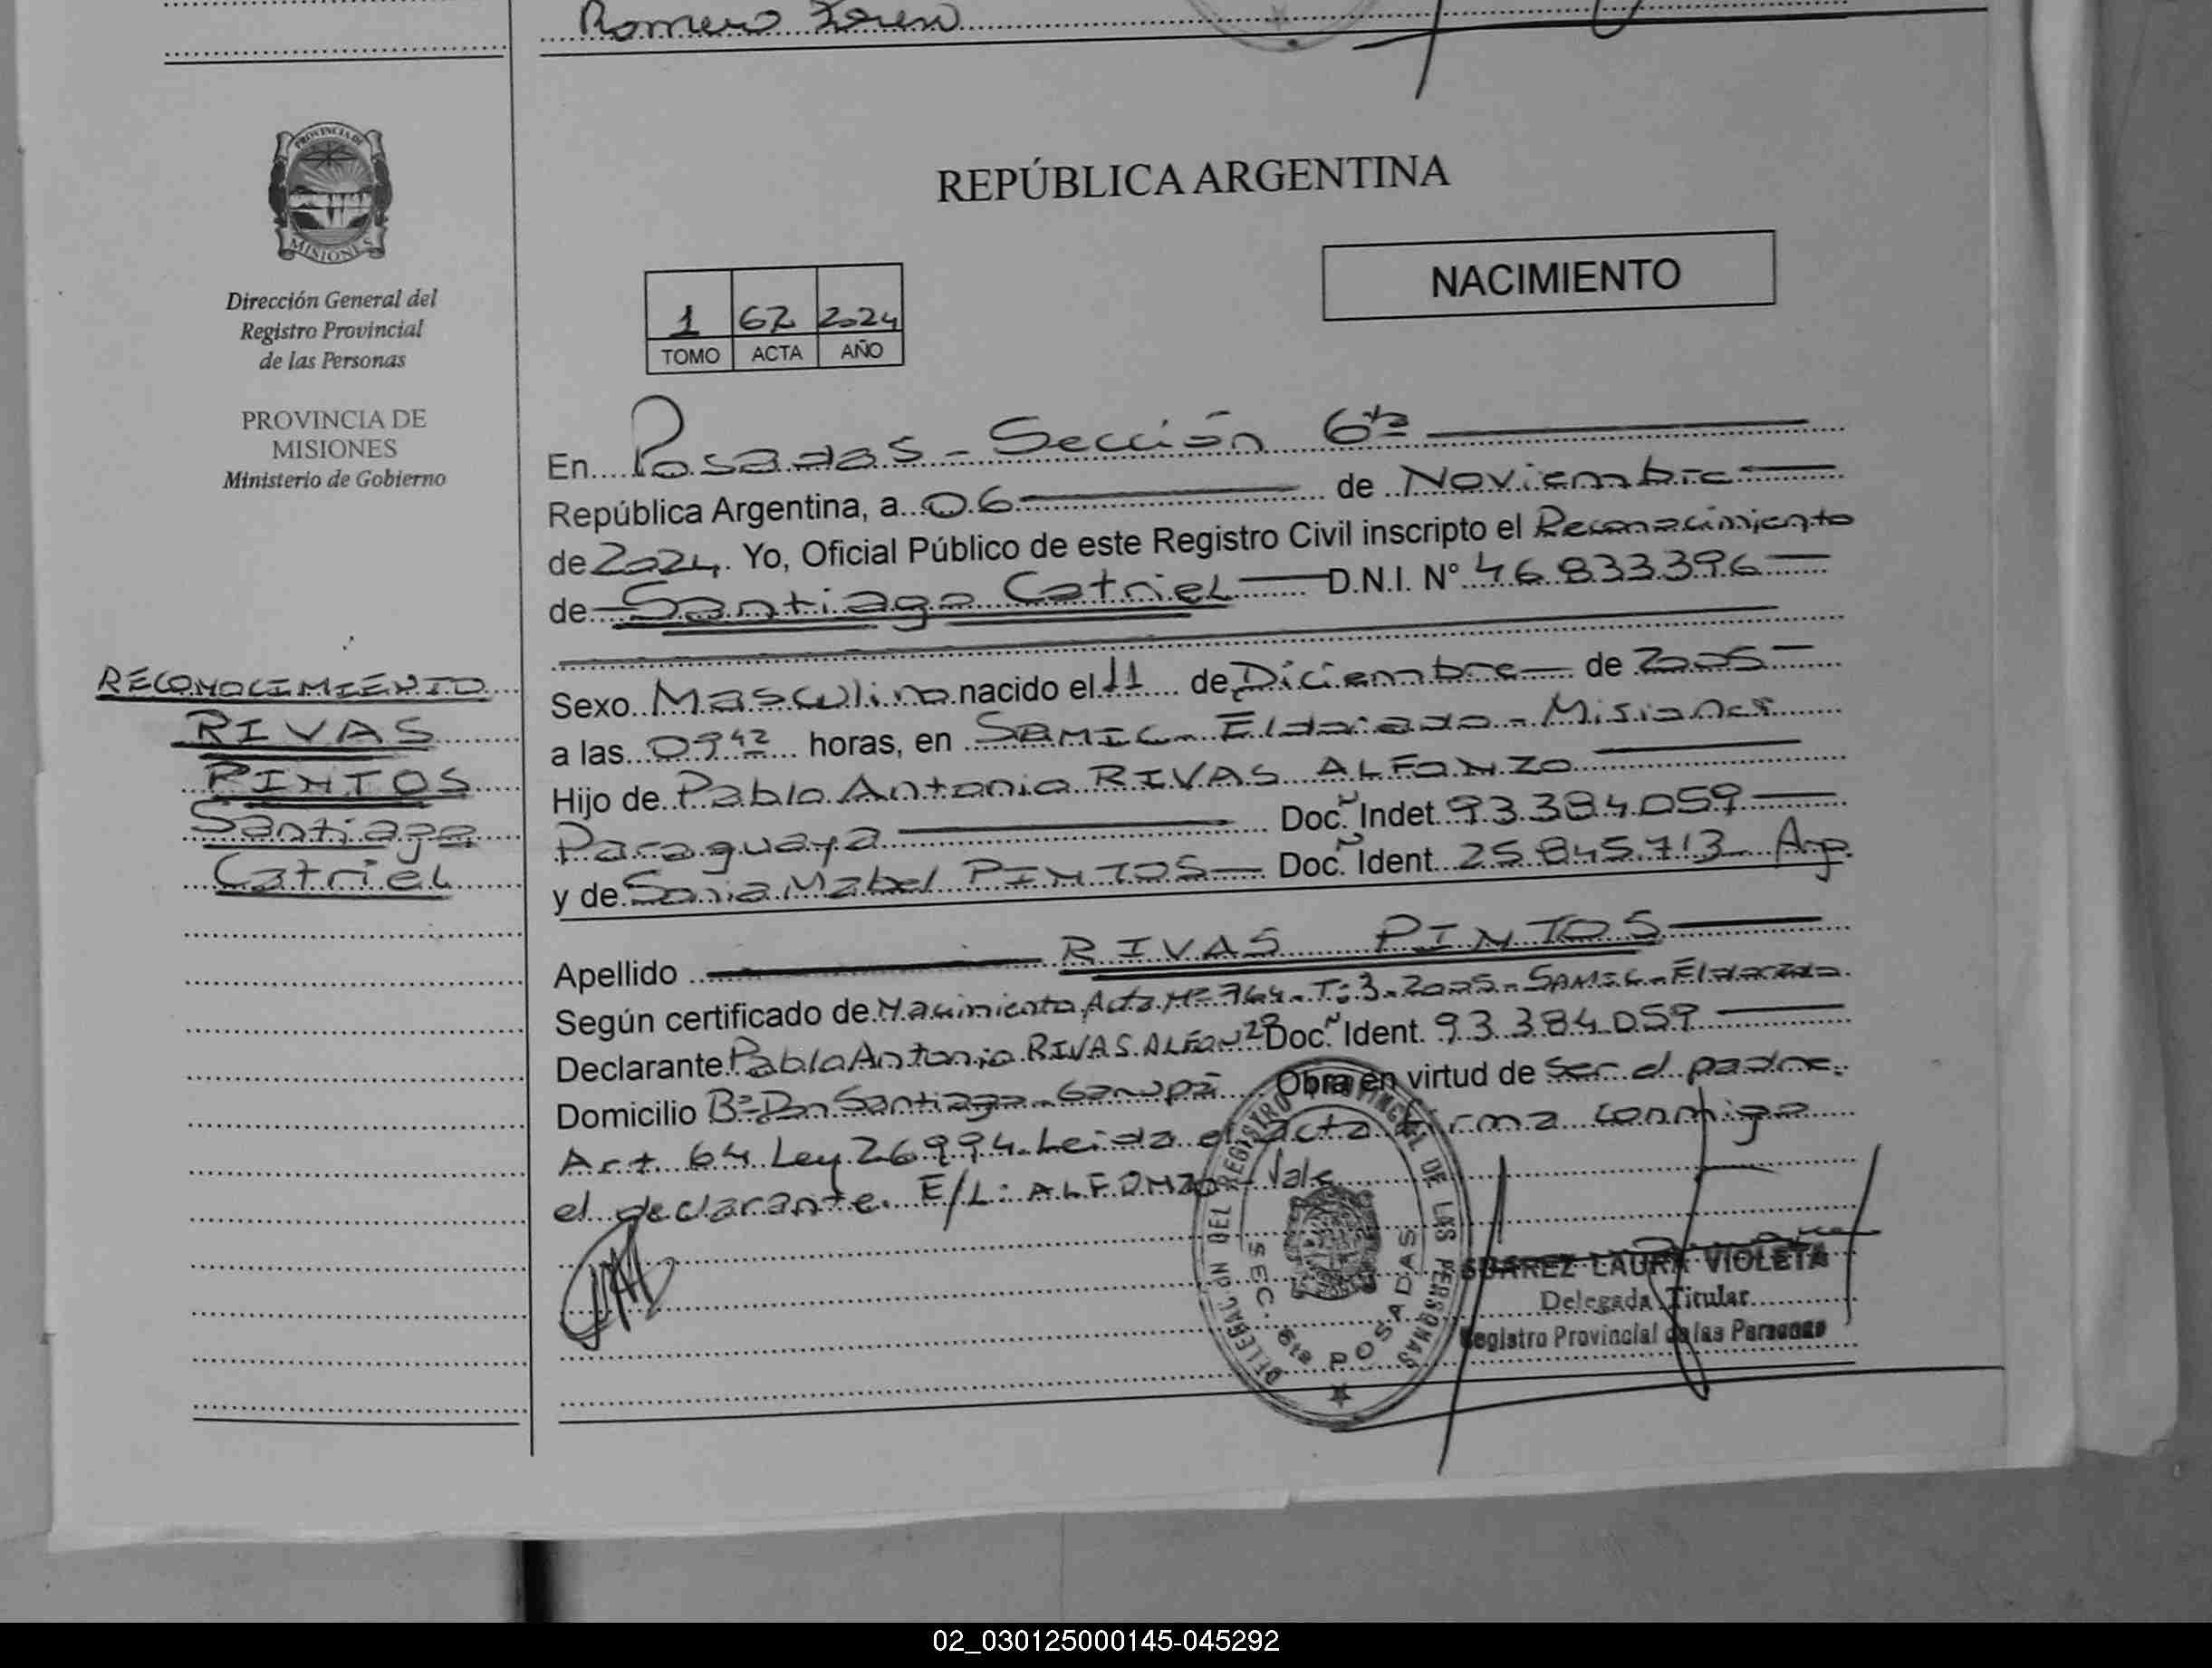 Romero
PROVINCIA DE
MISIONES
Dirección General del
Registro Provincial
de las Personas
PROVINCIA DE
MISIONES
Ministerio de Gobierno
RECONOCIMIENTO
RIVAS
PINTOS
Santiago
Catriel
REPÚBLICA ARGENTINA
NACIMIENTO
1 67 2024
TOMO ACTA AÑO
En Posadas - Sección 6ta
República Argentina, a 06 de Noviembre
de 2024. Yo, Oficial Público de este Registro Civil inscripto el Reconocimiento
de Santiago Catriel D.N.I. N° 46.833.396
Sexo Masculino nacido el 11 de Diciembre de 2005
a las 09 42 horas, en SAMIC - Eldorado - Misiones
Hijo de Pablo Antonio RIVAS ALFONZO
Paraguaya Doc. Indet. 93.384.059
y de Sonia Mabel PINTOS Doc. Ident. 25.845.713 Arg.
Apellido RIVAS PINTOS
Según certificado de Nacimiento Acta Nº 764 - T: 3 - 2005 - SAMIC - Eldorado
Declarante Pablo Antonio RIVAS ALFONZO Doc. Ident. 93.384.059
Domicilio Bº Don Santiago - Garupá Obra en virtud de ser el padre.
Art. 64 Ley 26994. Leida el acta firma conmigo
el declarante. E/L: ALFONZO - Vale
DELEGACION DEL REGISTRO PROVINCIAL DE LAS PERSONAS
SEC. 6ta POSADAS
SUAREZ LAURA VIOLETA
Delegada Titular
Registro Provincial de las Personas
02_030125000145-045292